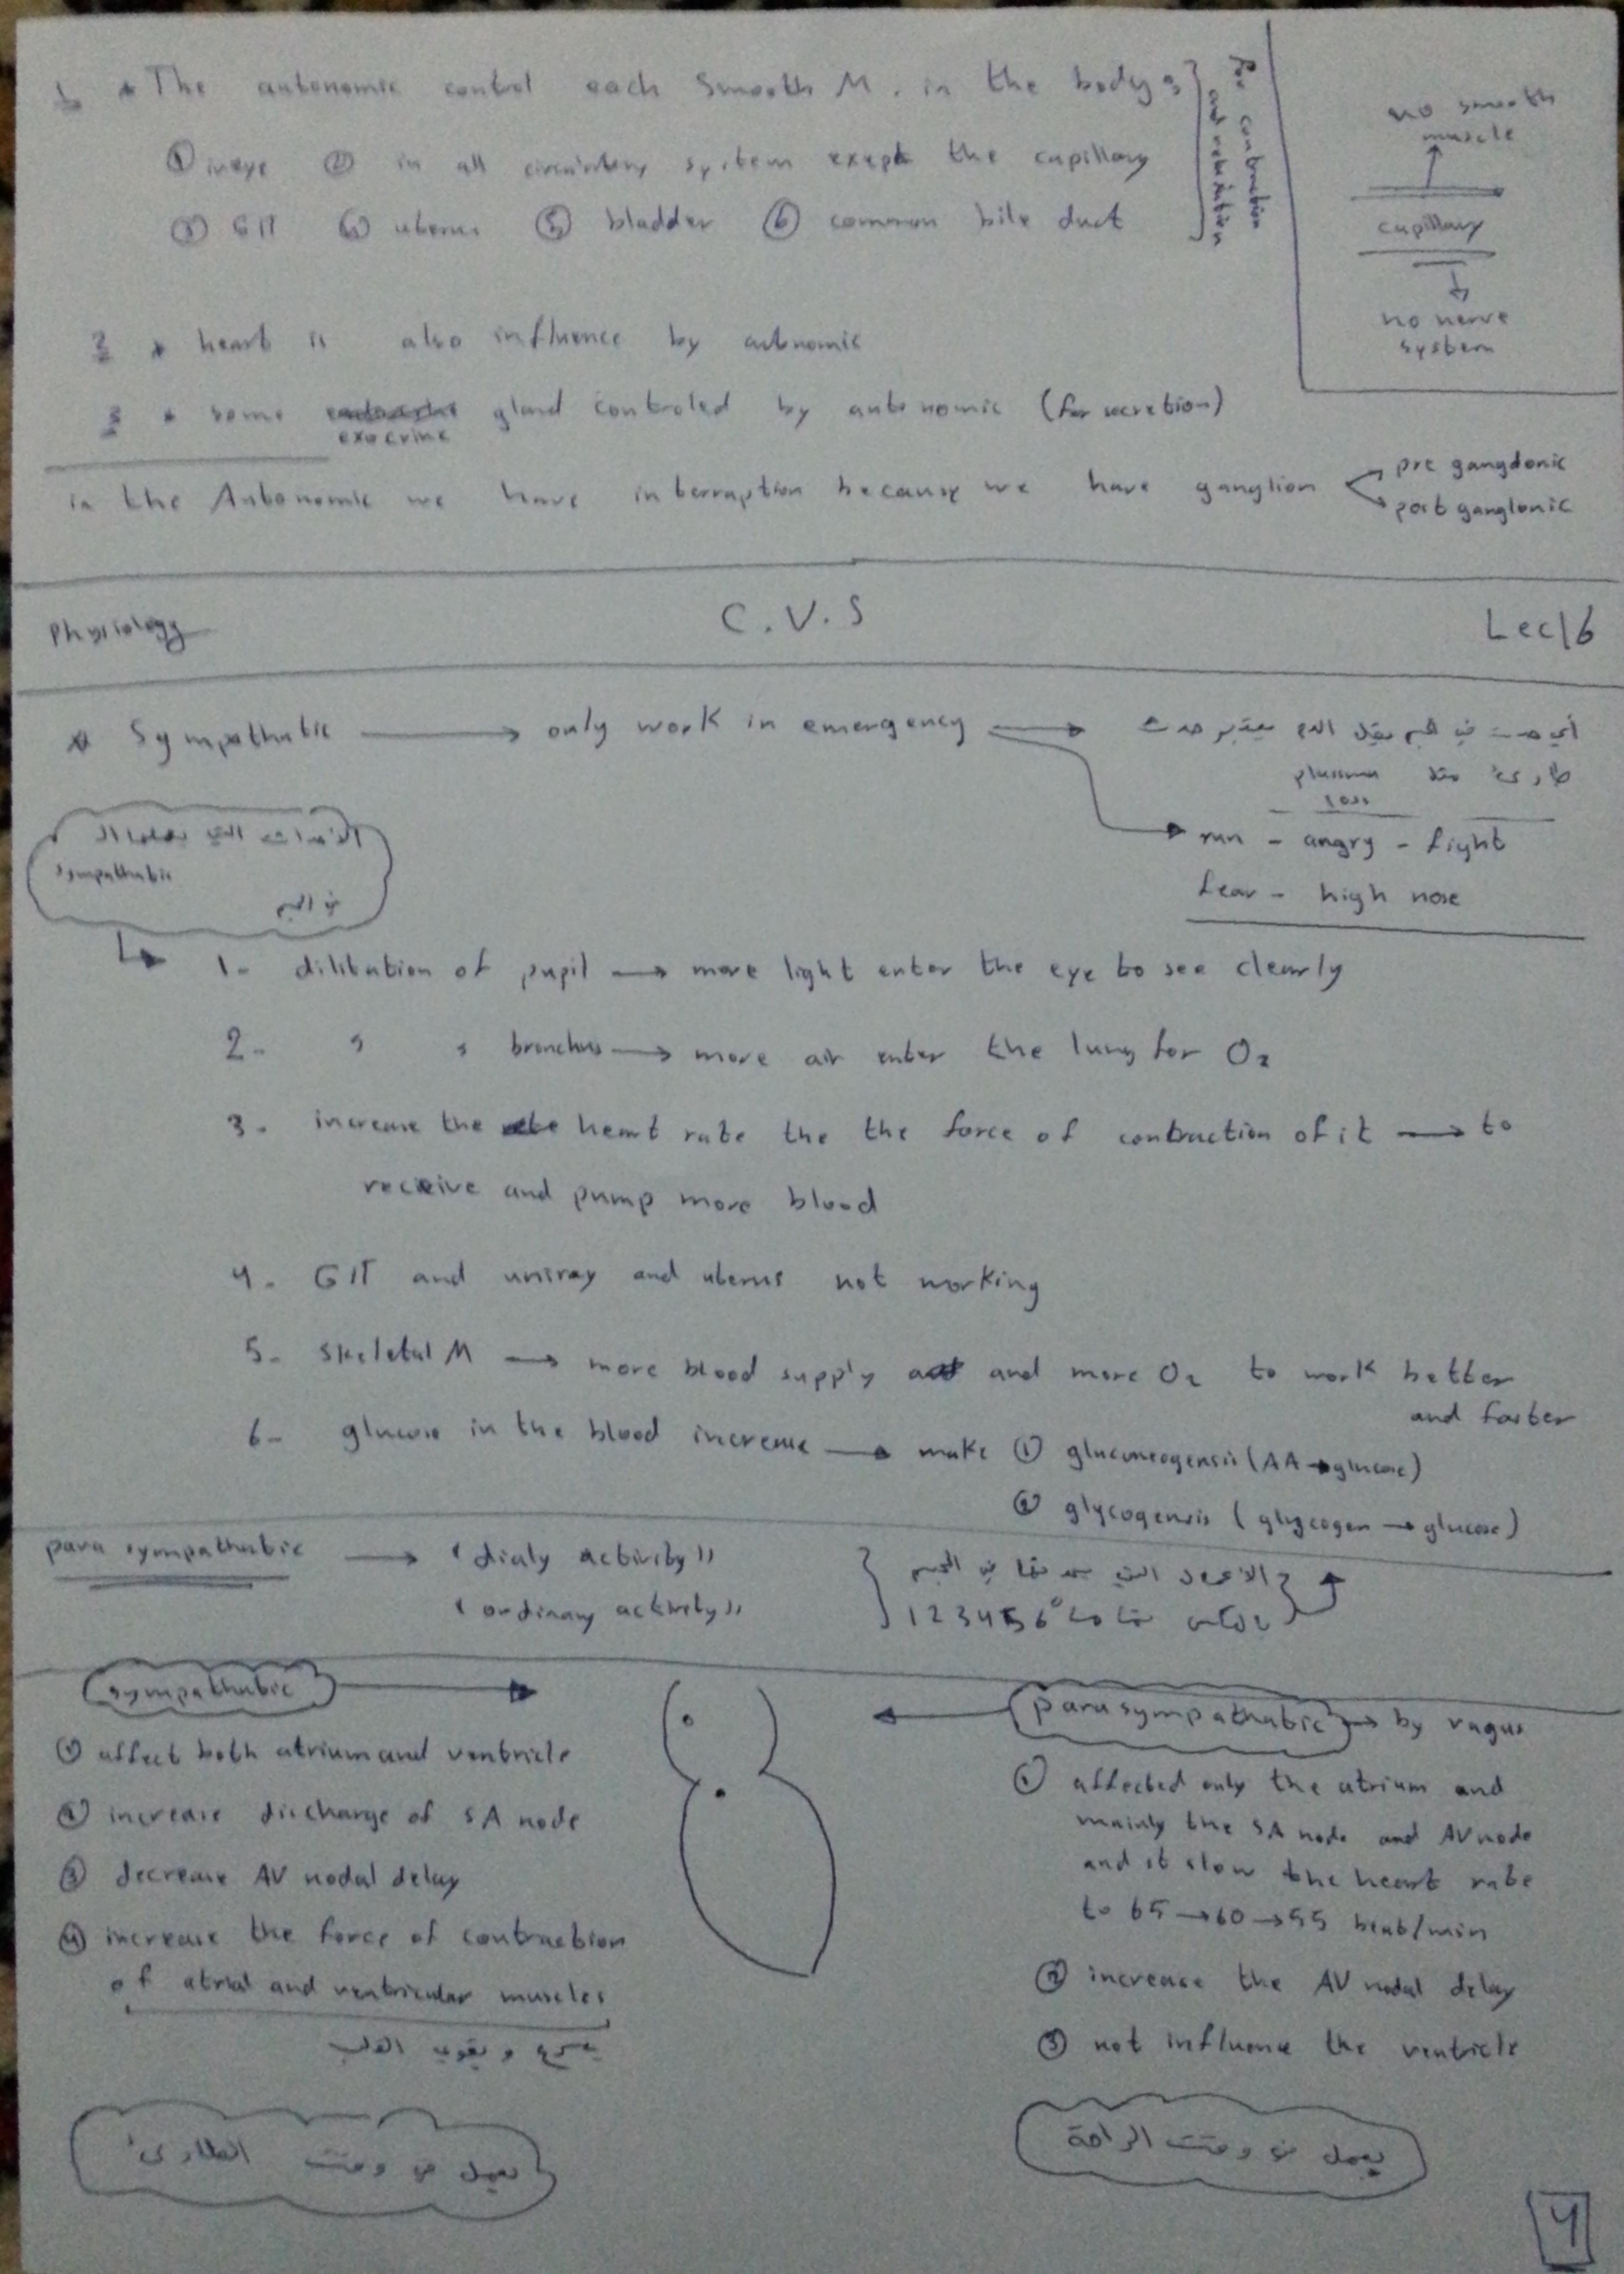 1 * The autonomic control each Smooth M. in the body:
① ineye ② in all circulatory system exept the capillary
③ GIT ④ uterus ⑤ bladder ⑥ common bile duct
For contraction
and relaxation
no smooth
muscle
capillary
no nerve
system
2 * heart is also influence by autnomic
3 * some exocrine gland controled by autonomic (for secretion)
in the Autonomic we have interraption because we have ganglion
pre ganglonic
post ganglonic
Physiology C.V.S Lec|6
* Sympathatic → only work in emergency → أي حدث في الجسم يقلل الدم يعتبر حدث
طارئ مثلا plasma
loss
run - angry - fight
fear - high nose
sympathatic
في الجسم
1- dilitation of pupil → more light enter the eye to see clearly
2- " " bronchus → more air enter the lung for O₂
3- increase the heart rate the the force of contraction of it → to
receive and pump more blood
4- GIT and uniray and uterus not working
5- skeletal M → more blood supply and more O₂ to work better
and faster
6- glucose in the blood increase → make ① gluconeogensis (AA → glucose)
② glycogensis (glycogen → glucose)
para sympathatic → "dialy activity"
"ordinary activity"
في الجسم
1 2 3 4 5 6
sympathatic → ← parasympathatic → by vagus
① affect both atrium and ventricle
② increase discharge of SA node
③ decrease AV nodal delay
④ increase the force of contraction
of atrial and ventricular muscles
يسرع و يقوي القلب
يعمل في وقت الطارئ
① affected only the atrium and
mainly the SA node and AV node
and it slow the heart rate
to 65 → 60 → 55 beat/min
② increase the AV nodal delay
③ not influence the ventricle
يعمل في وقت الراحة
4